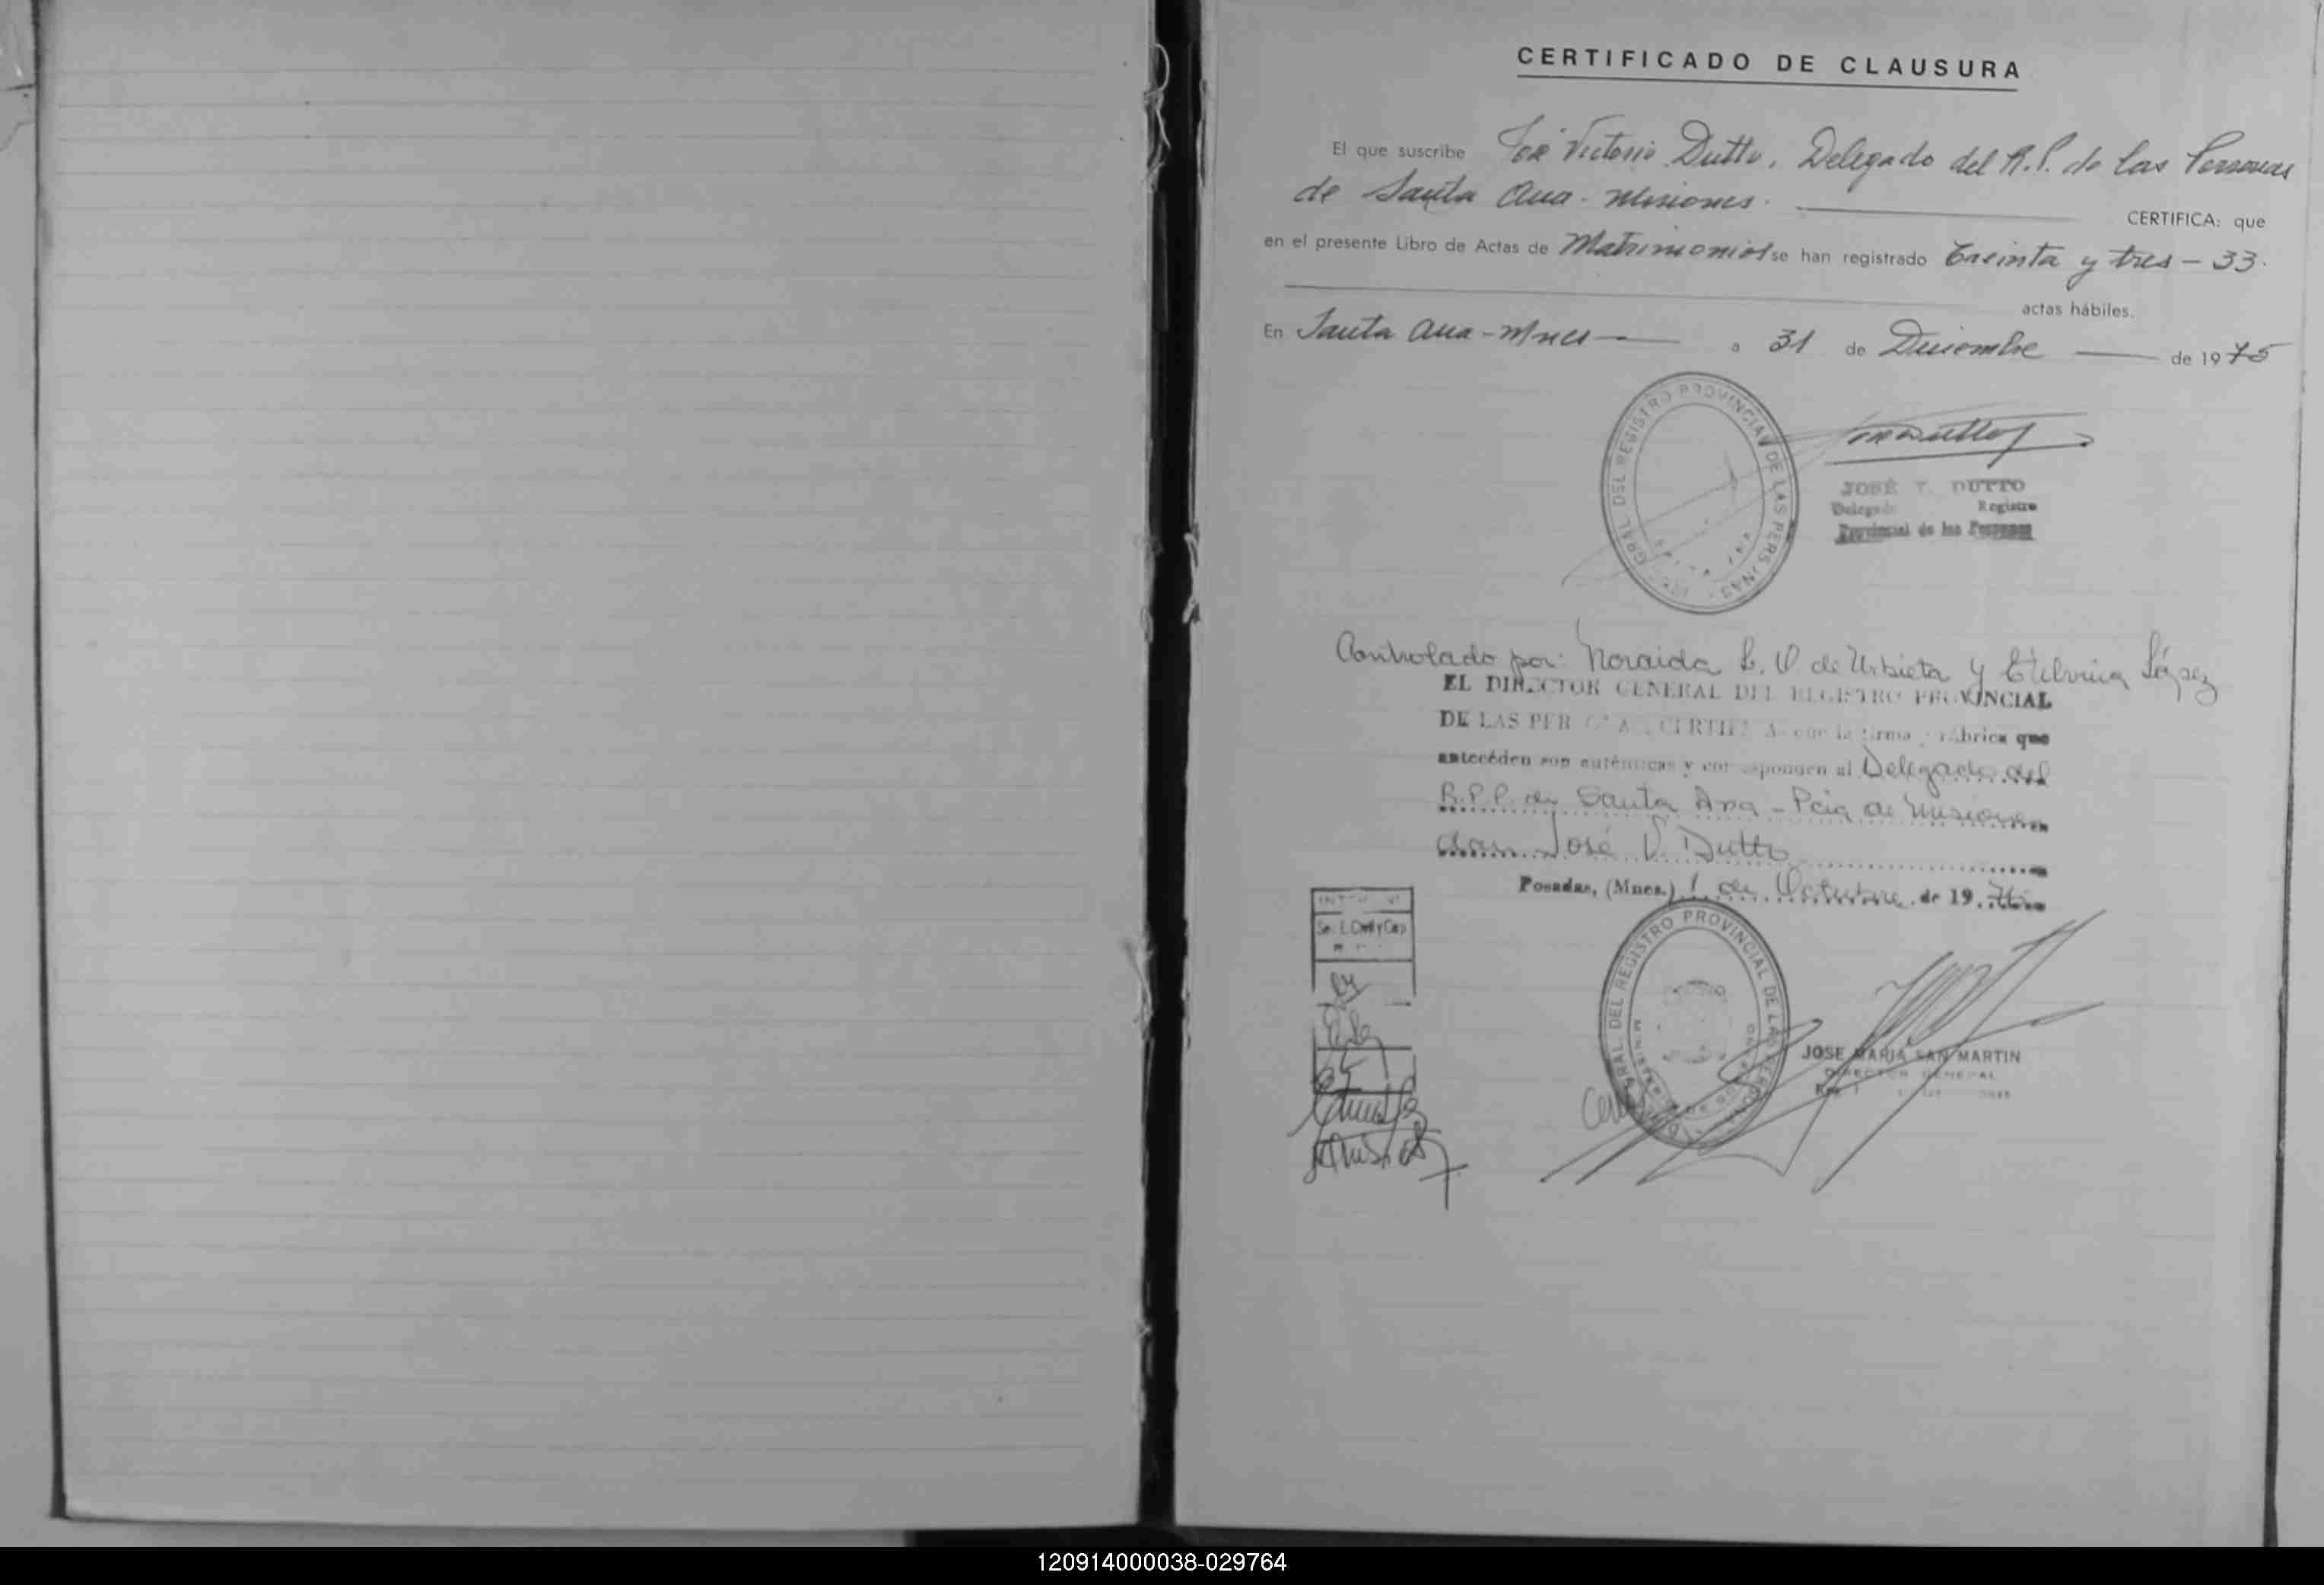 CERTIFICADO DE CLAUSURA
El que suscribe José Victorio Dutto, Delegado del R.P. de las Personas
de Santa Ana - Misiones. CERTIFICA: que
en el presente Libro de Actas de Matrimonios se han registrado treinta y tres - 33.
actas hábiles.
En Santa Ana - Mnes a 31 de Diciembre de 1975
GRAL. DEL REGISTRO PROVINCIAL DE LAS PERSONAS
JOSÉ V. DUTTO
Delegado Registro
Provincial de las Personas
Controlado por: Noraida L. V de Urbieta y Etelvina López
EL DIRECTOR GENERAL DEL REGISTRO PROVINCIAL
DE LAS PERSONAS, CERTIFICA: que la firma y rúbrica que
anteceden son auténticas y corresponden al Delegado del
R.P.P. de Santa Ana - Pcia de Misiones
don José V. Dutto
Posadas, (Mnes.) 1 de Octubre de 19
Civil y Cap
GRAL. DEL REGISTRO PROVINCIAL DE LAS PERSONAS
JOSE MARIA SAN MARTIN
DIRECTOR GENERAL
120914000038-029764